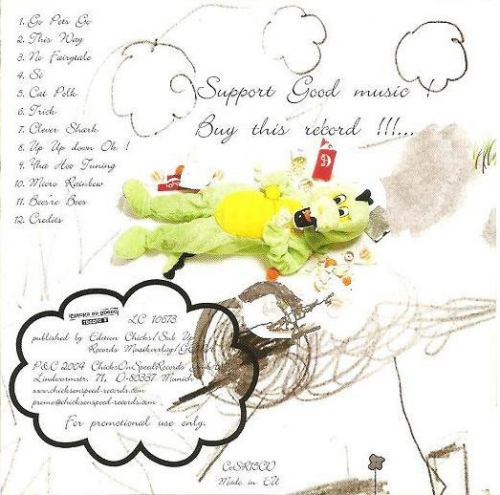 1. Go Pets Go
2. This Way
3. No Fairytale
4. Si
5. Cat Polk
6. Trick
7. Clever Shark
8. Up Up down Ok !
9. Yha Hoo Tuning
10. Micro Rainbow
11. Bees're Bees
12. Credits
Support Good music !
Buy this record !!!...
LC 10673
published by Edition Chicks/Sub Up
Records Musikverlag/
P&C 2004 ChicksOnSpeedRecords
Lindwurmstr. 71, D-80337 Munich
www.chicksonspeed-records.com
promo@chicksonspeed-records.com
For promotional use only.
Made in EU